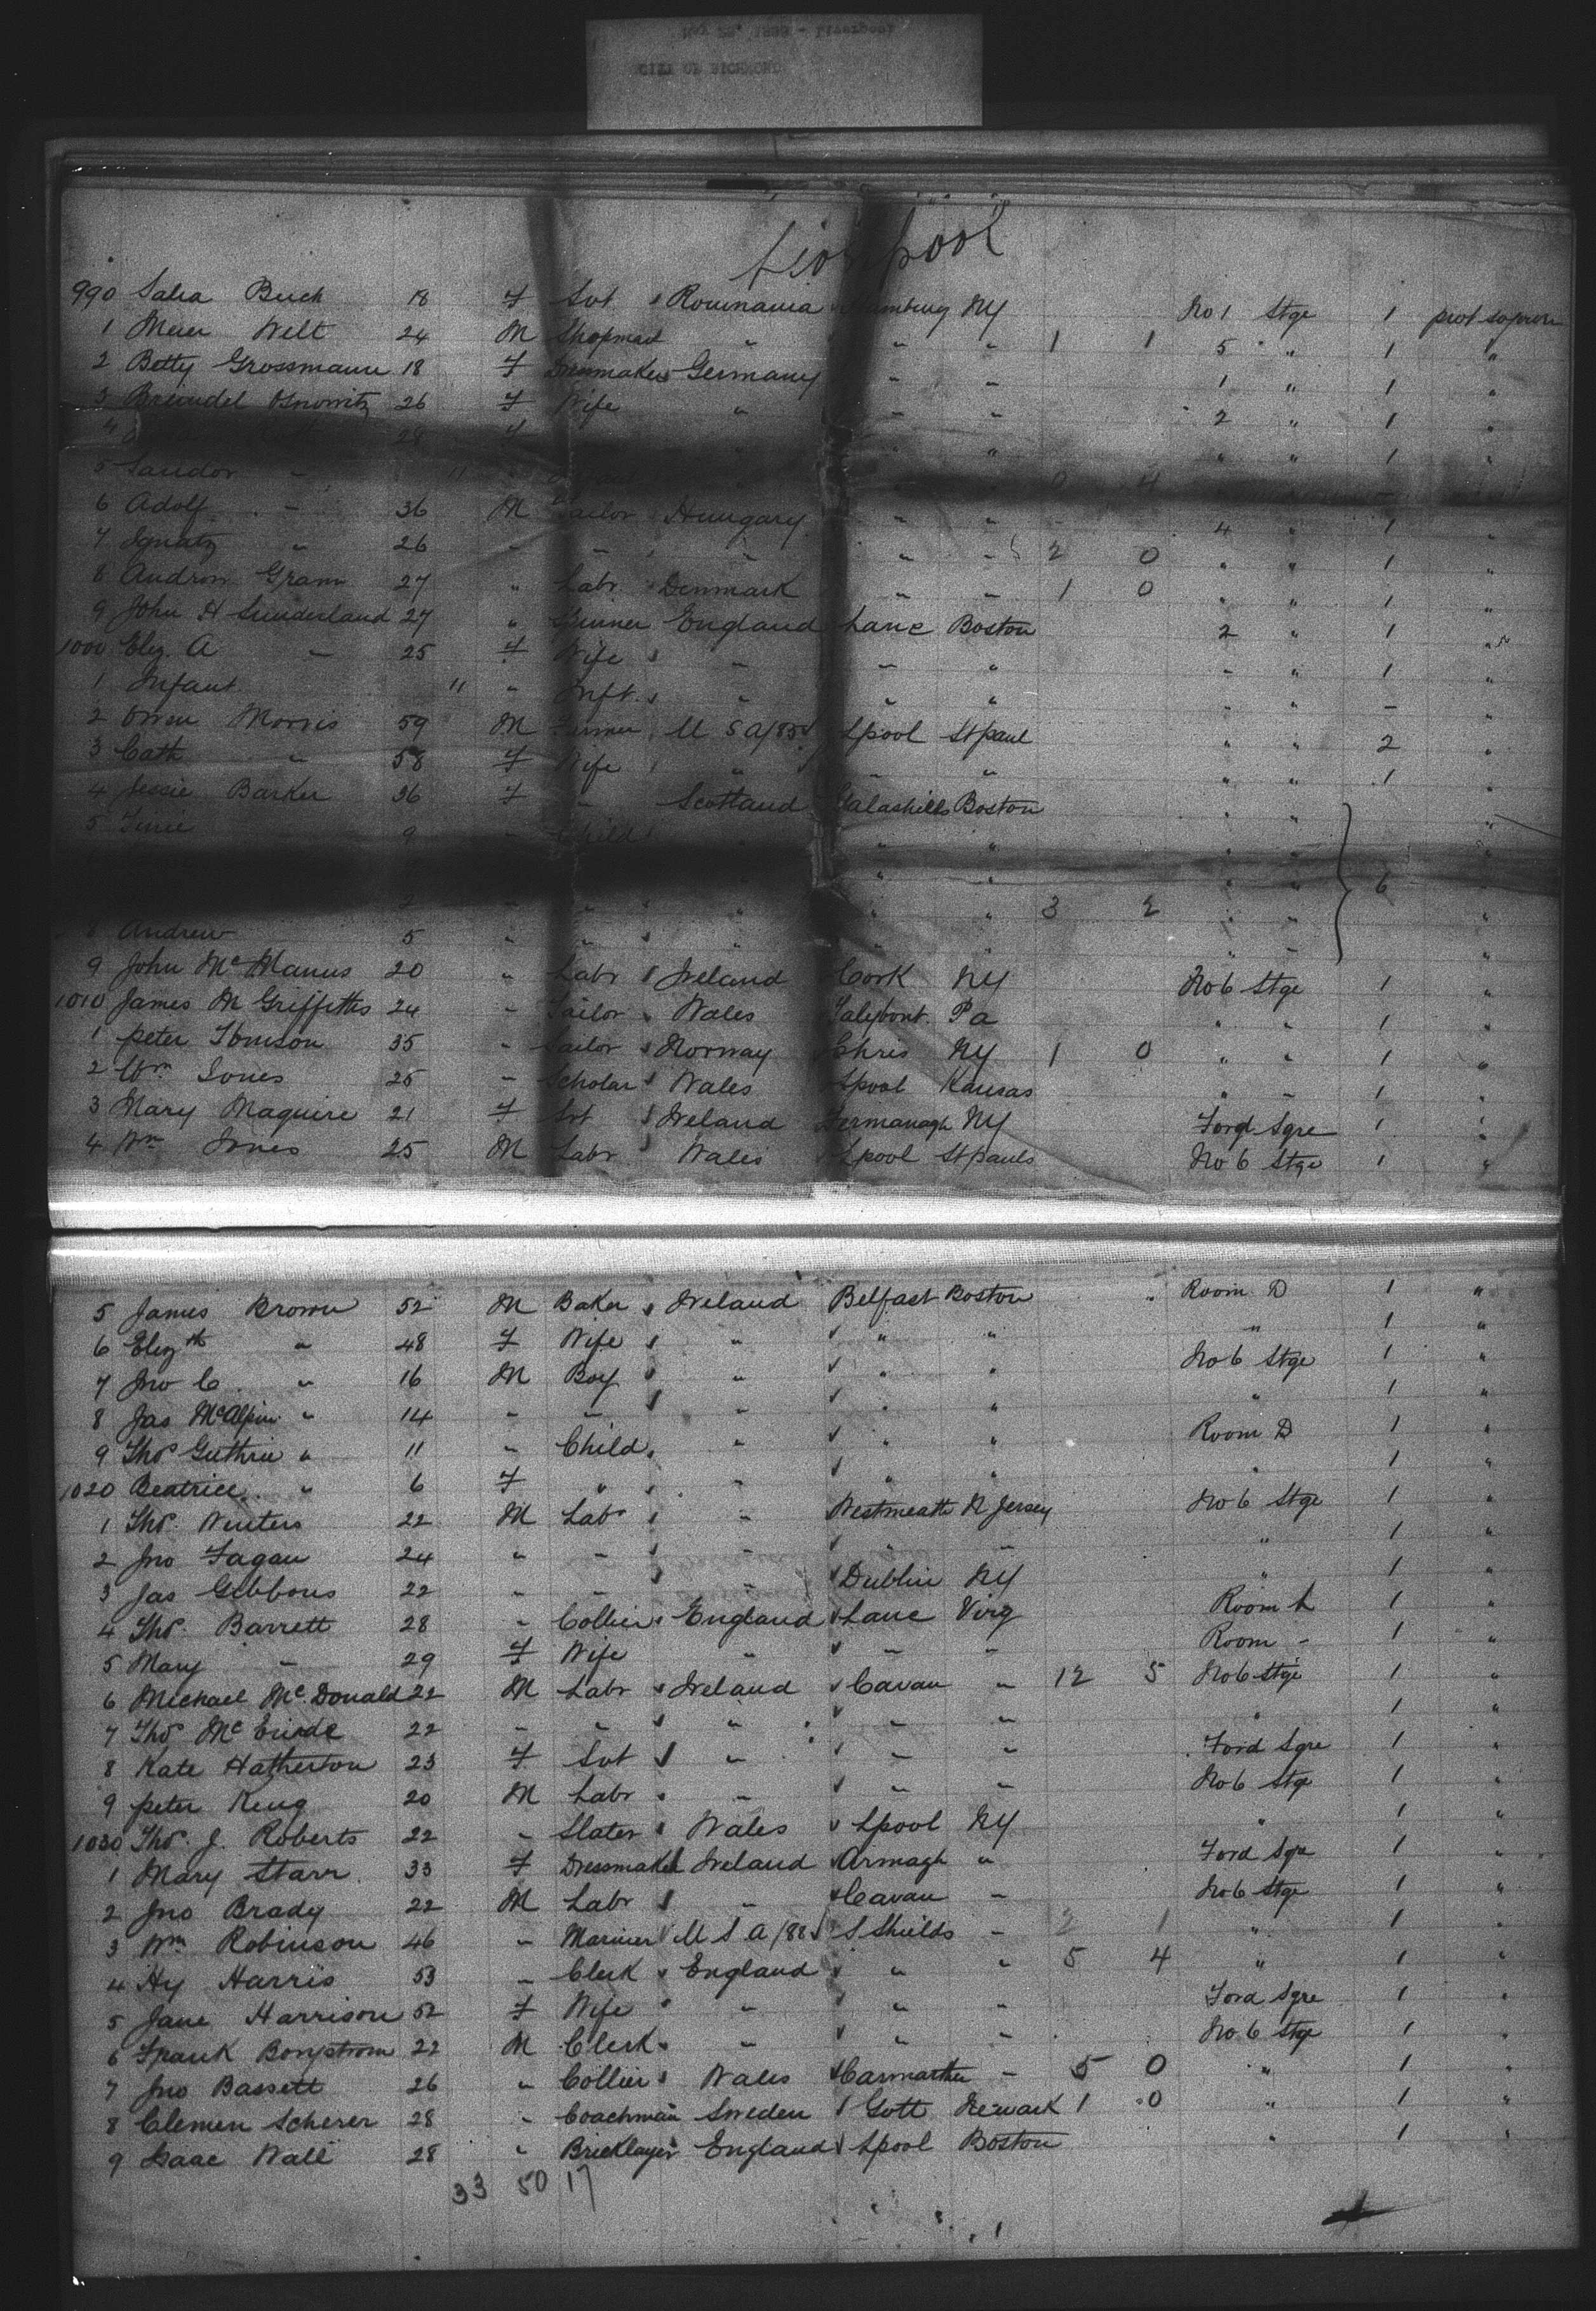 May 25, 1889 - Liverpool
CITY OF RICHMOND
Liverpool
990 Salia Beich 18 F Svt Roumania Hamburg NY No 1 Stge 1 prot sojourn
1 Meier Welt 24 M Shopman " " " 1 1 5 " 1 "
2 Betty Grossmann 18 F Dressmaker Germany " " 1 " 1 "
3 Breindel Osnowitz 26 F Wife " " " 2 " 1 "
4 28 F " " " " " 1 "
5 Sandor " 11 0 4
6 Adolf " 36 M Tailor Hungary " " 4 " 1 "
7 Ignatz " 26 " " " " " 2 0 " " 1 "
8 Andron Gram 27 " Labr Denmark " " 1 0 " " 1 "
9 John H Sunderland 27 " Spinner England Lanc Boston 2 " 1 "
1000 Eliz. A " 25 F Wife " " " " " 1 "
1 Infant 11 " Inft. " " " " " - "
2 Owen Morris 59 M Farmer U S A/83 Lpool St paul " " 2 "
3 Cath " 58 F Wife " " " " " 1 "
4 Jessie Barker 36 F " Scotland Galashiells Boston " " "
5 9 " Child " " " " " "
" " " " " 6
7 " " " " " 3 2 " " "
8 Andrew 5 " " " " " " " "
9 John McManus 20 " Labr Ireland Cork NY No 6 Stge 1 "
1010 James M Griffiths 24 " Tailor Wales Talybont. Pa " " 1 "
1 peter Tomson 35 " Sailor Norway Chris NY 1 0 " " 1 "
2 Wm Jones 25 " Scholar Wales Lpool Kansas " " 1 "
3 Mary Maguire 21 F Svt Ireland Fermanagh NY Ford Sqre 1 "
4 Wm Jones 25 M Labr Wales Lpool St pauls No 6 Stge 1 "
5 James Brown 52 M Baker Ireland Belfast Boston Room D 1 "
6 Elizth " 48 F Wife " " " " 1 "
7 Jno C. " 16 M Boy " " " No 6 Stge 1 "
8 Jas McAlpin " 14 " " " " " " 1 "
9 Thos Guthrie " 11 " Child " " " Room D 1 "
1020 Beatrice " 6 F " " " " " 1 "
1 Thos. Winters 22 M Labr " Westmeath N Jersey No 6 Stge 1 "
2 Jno Fagan 24 " " " " " " 1 "
3 Jas Gibbons 22 " " " Dublin NY " 1 "
4 Thos. Barrett 28 " Collier England Lanc Virg Room h 1 "
5 Mary " 29 F Wife " " " Room " 1 "
6 Michael McDonald 22 M Labr Ireland Cavan " 12 5 No 6 Stge 1 "
7 Thos 22 " " " " " " 1 "
8 Kate Hatherton 23 F Svt " " " Ford Sqre 1 "
9 peter King 20 M Labr " " " No 6 Stge 1 "
1030 Thos. J. Roberts 22 " Slater Wales Lpool NY " 1 "
1 Mary Starr 33 F Dressmaker Ireland Armagh " Ford Sqre 1 "
2 Jno Brady 22 M Labr " Cavan " No 6 Stge 1 "
3 Wm Robinson 46 " Mariner U S A/88 S Shields " 2 1 " 1 "
4 Hy Harris 53 " Clerk England " " 5 4 " 1 "
5 Jane Harrison 52 F Wife " " " Ford Sqre 1 "
6 Frank Borgstrom 22 M Clerk " " " No 6 Stge 1 "
7 Jno Bassett 26 " Collier Wales Carmarthen " 5 0 " 1 "
8 Clemen Scherer 28 " Coachman Sweden Gott Newark 1 0 " 1 "
9 Isaac Wall 28 " Bricklayer England Lpool Boston " 1 "
33 50 17